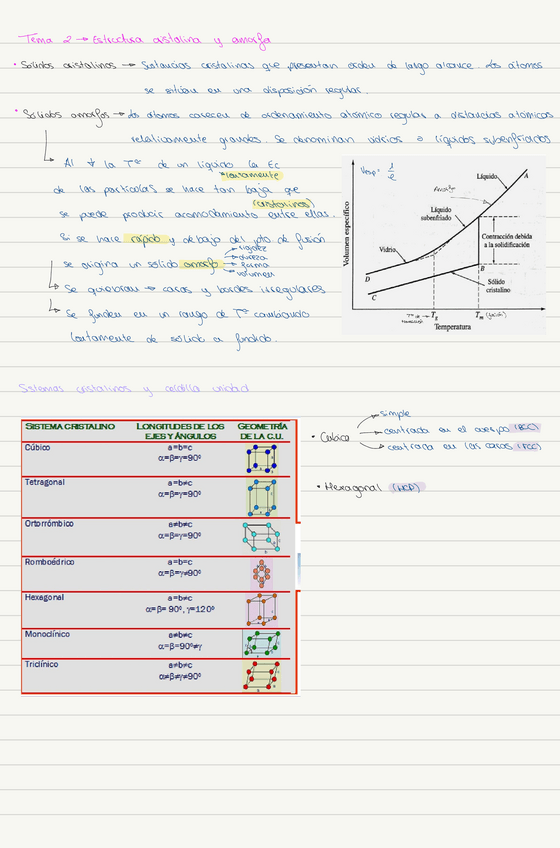 Tema 2 → Estructura cristalina y amorfa
• Sólidos cristalinos → Sustancias cristalinas que presentan orden de largo alcance. Los átomos
se sitúan en una disposición regular.
• Sólidos amorfos → Los átomos carecen de ordenamiento atómico regular a distancias atómicas
relativamente grandes. Se denominan vidrios o líquidos subenfriados
Al ↓ la Tª de un líquido la Ec
lentamente
de las partículas se hace tan baja que
(cristalinos)
se puede producir acomodamiento entre ellas.
Si se hace rápido y debajo del pto de fusión
se origina un sólido amorfo
rigidez
dureza
forma
volumen
↳ Se quiebran → caras y bordes irregulares
↳ Se funden en un rango de Tª cambiando
lentamente de sólido a fundido.
Vesp = 1/ρ
Volumen específico
Líquido
A
Amorfo
Líquido
subenfriado
Contracción debida
a la solidificación
Vidrio
D
B
C
Sólido
cristalino
Tg
Tm (fusión)
Temperatura
Sistemas cristalinos y celdilla unidad
SISTEMA CRISTALINO LONGITUDES DE LOS EJES Y ÁNGULOS GEOMETRÍA DE LA C.U.
Cúbico a=b=c
α=β=γ=90º
Tetragonal a=b=c
α=β=γ=90º
Ortorrómbico a≠b≠c
α=β=γ=90º
Romboédrico a=b=c
α=β=γ≠90º
Hexagonal a=b≠c
α=β= 90º, γ=120º
Monoclínico a≠b≠c
α=β=90º≠γ
Triclínico a≠b≠c
α≠β≠γ≠90º
• Cúbica
→ simple
→ centrada en el cuerpo (BCC)
→ centrada en las caras (FCC)
• Hexagonal (HCP)